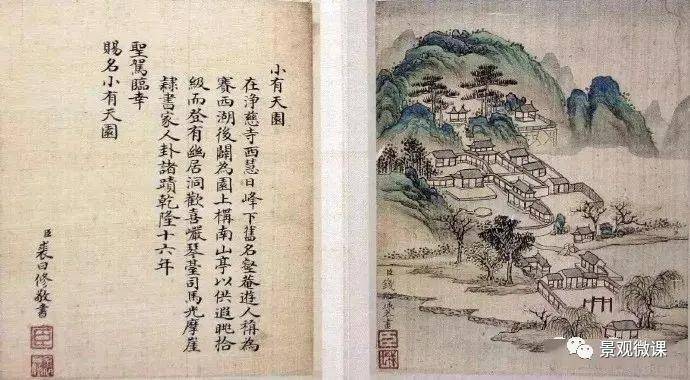 小有天園
在淨慈寺西慧日峰下舊名壑菴遊人稱為
賽西湖後闢為園上構南山亭以供遐眺拾
級而登有幽居洞歡喜巖琴臺司馬光摩崖
隸書家人卦諸蹟乾隆十六年
聖駕臨幸
賜名小有天園
臣裘曰修敬書
臣錢
景观微课